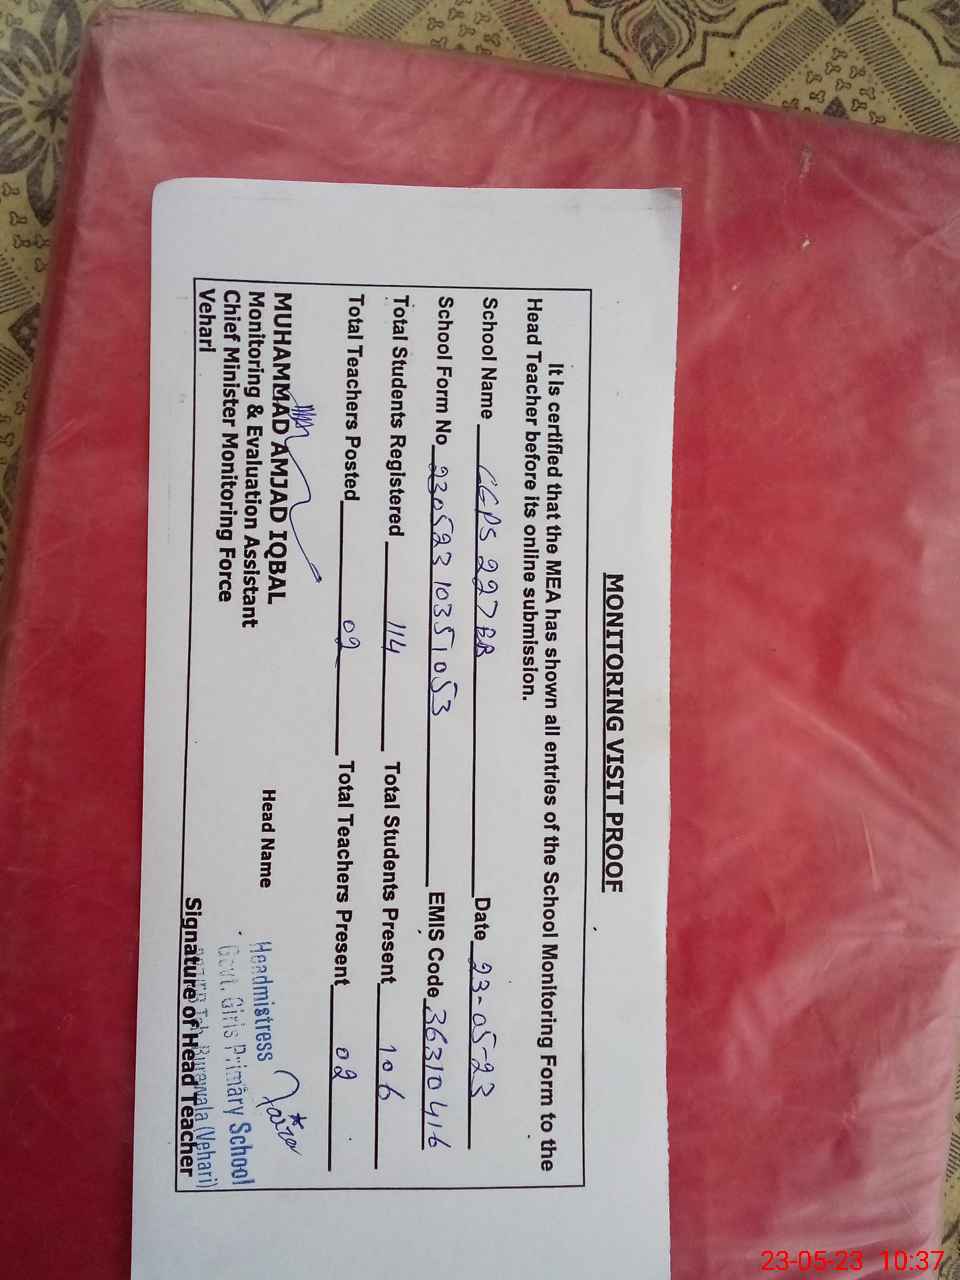 MONITORING VISIT PROOF
It is certified that the MEA has shown all entries of the School Monitoring Form to the
Head Teacher before its online submission.
School Name GGPS 227 EB Date 23-05-23
School Form No 230523 1035 1053 EMIS Code 36310416
Total Students Registered 114 Total Students Present 106
Total Teachers Posted 02 Total Teachers Present 02
MUHAMMAD AMJAD IQBAL
Monitoring & Evaluation Assistant
Chief Minister Monitoring Force
Vehari
Head Name
Headmistress
Govt. Girls Primary School
Burewala (Vehari)
Signature of Head Teacher
23-05-23 10:37